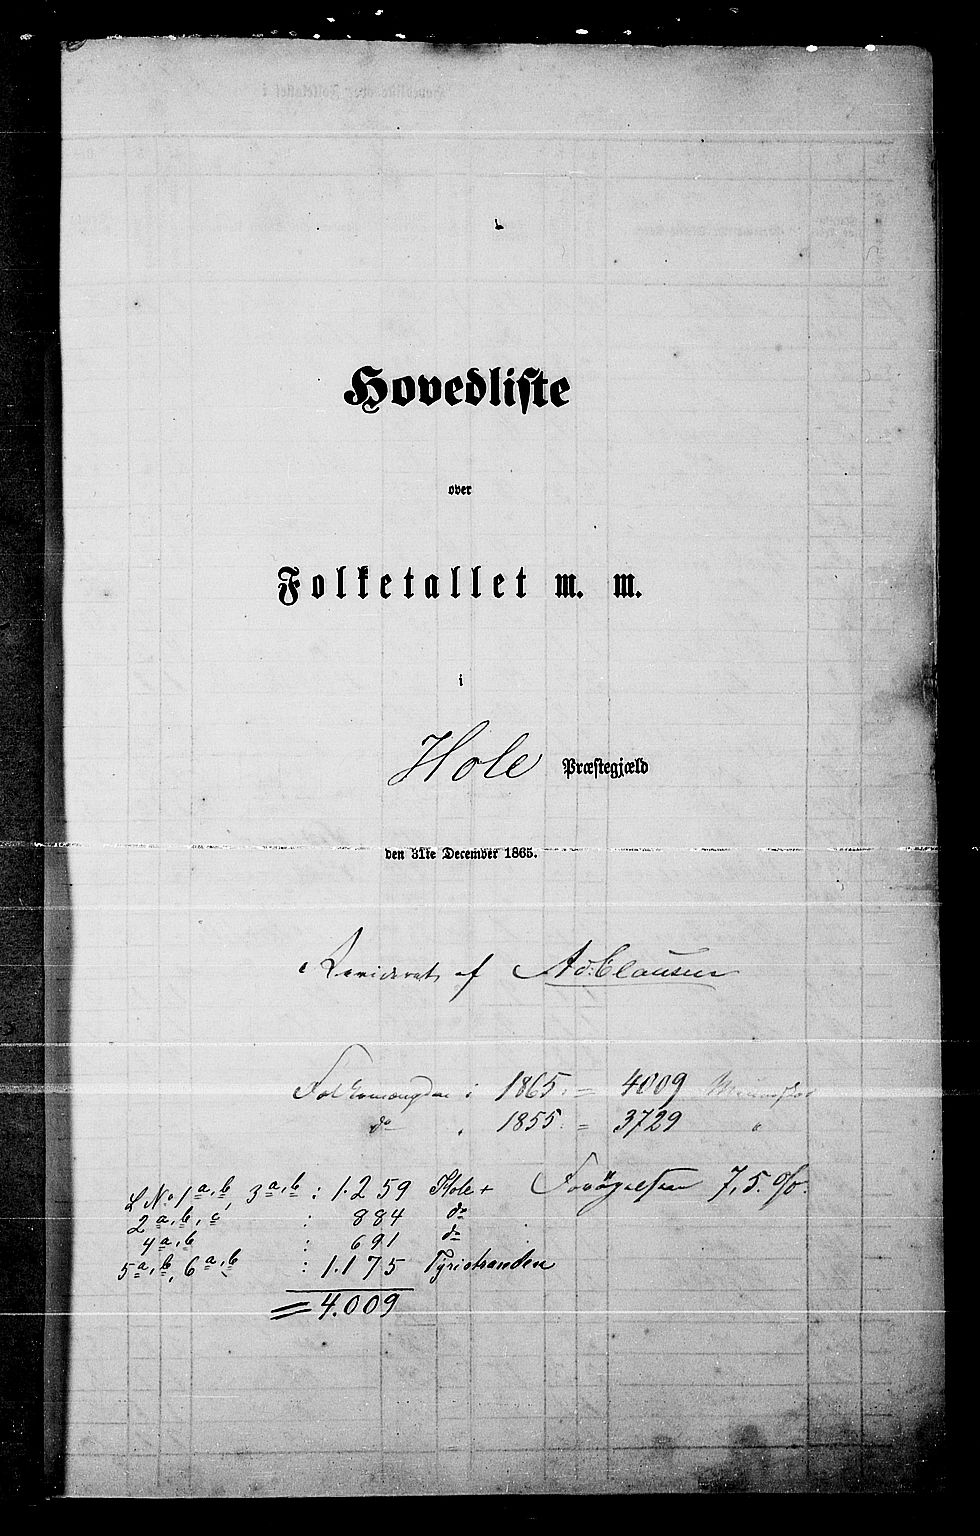 Hovedliste
over
Folketallet m. m.
i
Hole Præstegjæld
den 31te December 1865.
Revideret af Ad. Clausen
Folkemængden i 1865 = 4009 Mennesker
do " 1855 = 3729 "
Forøgelsen 7,5 %.
L No 1 a, b, 3 a, b : 1.259 Hole +
2 a, b, c : 884 do
4 a, b : 691 do
5 a, b, 6 a, b : 1.175 Tyristranden
= 4.009